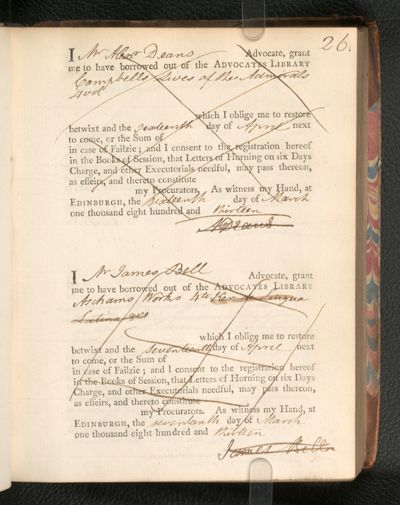 26.
I Mr Alexr Deans Advocate, grant
me to have borrowed out of the ADVOCATES LIBRARY
Campbells Lives of the Admirals
4 vol
which I oblige me to restore
betwixt and the sixteenth day of April next
to come, or the Sum of
in case of Failzie; and I consent to the registration hereof
in the Books of Session, that Letters of Horning on six Days
Charge, and other Executorials needful, may pass thereon,
as effeirs, and thereto constitute
my Procurators. As witness my Hand, at
EDINBURGH, the Sixteenth day of March
one thousand eight hundred and thirteen
ADeans
I Mr James Bell Advocate, grant
me to have borrowed out of the ADVOCATES LIBRARY
Aschams Works 4to Lingua
Latina
which I oblige me to restore
betwixt and the seventeenth day of April next
to come, or the Sum of
in case of Failzie; and I consent to the registration hereof
in the Books of Session, that Letters of Horning on six Days
Charge, and other Executorials needful, may pass thereon,
as effeirs, and thereto constitute
my Procurators. As witness my Hand, at
EDINBURGH, the seventeenth day of March
one thousand eight hundred and thirteen
James Bell